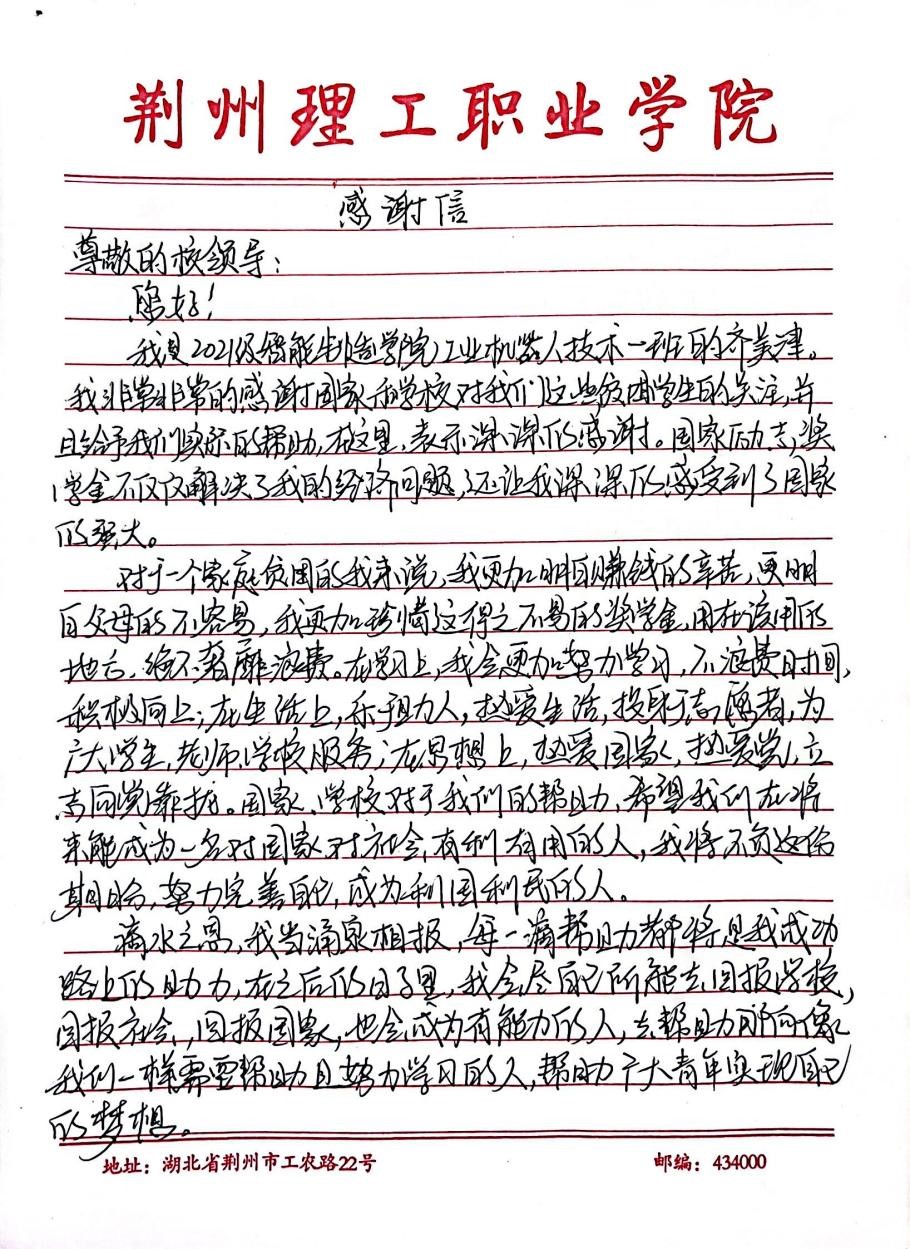 荆州理工职业学院
感谢信
尊敬的校领导:
您好!
我是2021级智能制造学院工业机器人技术一班的齐美津。
我非常非常的感谢国家和学校对我们这些贫困学生的关注,并
且给予我们实际的帮助,在这里,表示深深的感谢。国家励志奖
学金不仅仅解决了我的经济问题,还让我深深的感受到了国家
的强大。
对于一个家庭贫困的我来说,我更加明白赚钱的辛苦,更明
白父母的不容易,我更加珍惜这得之不易的奖学金,用在该用的
地方,绝不奢靡浪费。在学习上,我会更加努力学习,不浪费时间,
积极向上;在生活上,乐于助人,热爱生活,投身于志愿者,为
广大学生,老师,学校服务;在思想上,热爱国家,热爱党,立
志向党靠拢。国家、学校对于我们的帮助,希望我们在将
来能成为一名对国家对社会有利有用的人,我将不负这份
期盼,努力完善自己,成为利国利民的人。
滴水之恩,我当涌泉相报,每一滴帮助都将是我成功
路上的助力,在之后的日子里,我会尽自己所能去回报学校,
回报社会,回报国家,也会成为有能力的人,去帮助那向像
我们一样需要帮助且努力学习的人,帮助广大青年实现自己
的梦想。
地址:湖北省荆州市工农路22号 邮编:434000